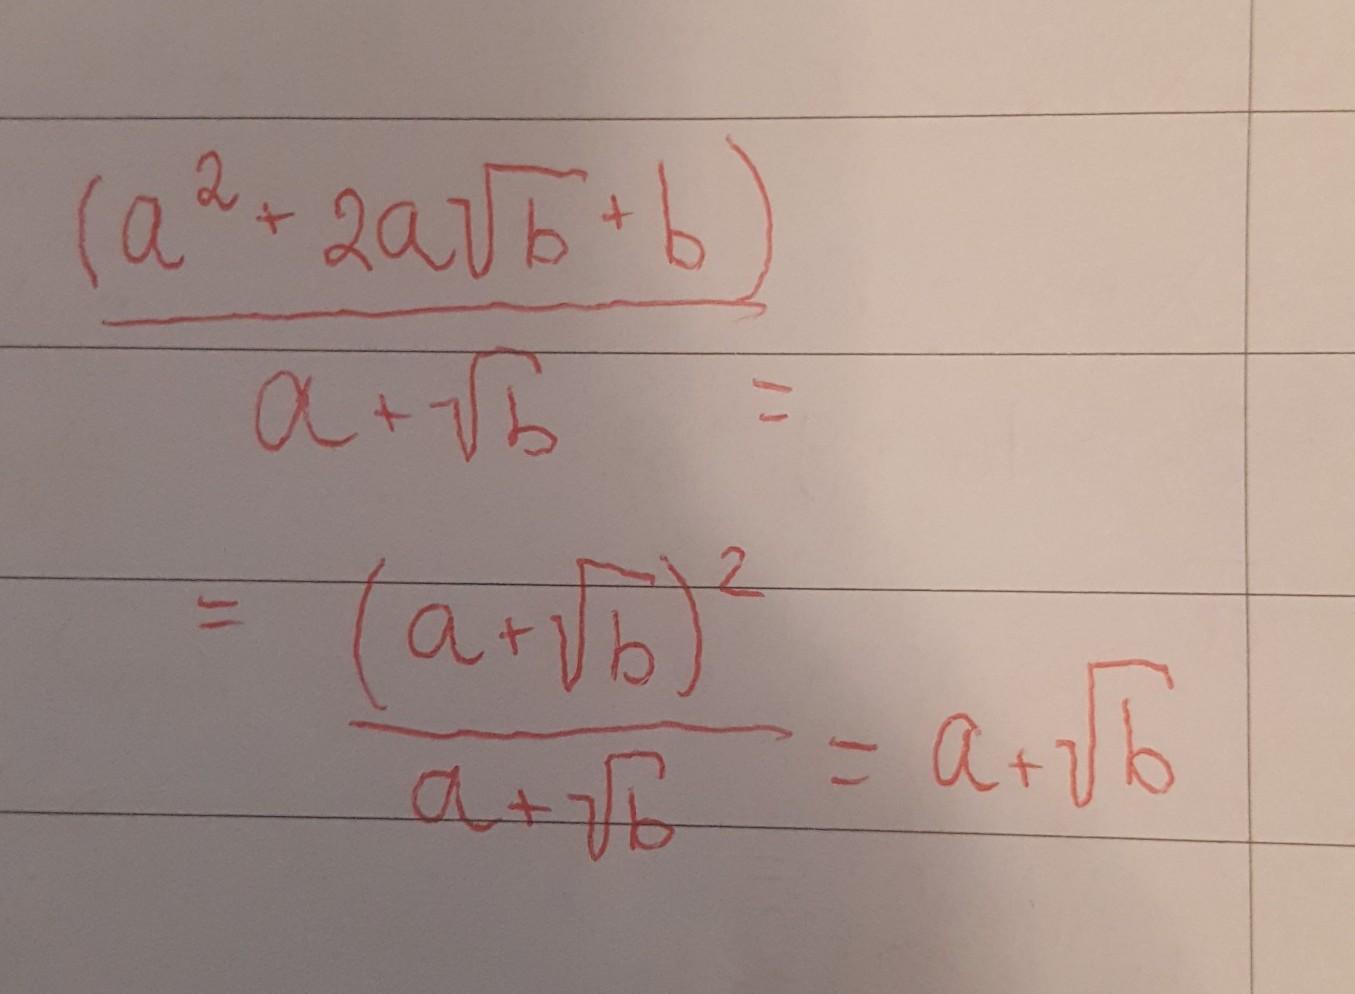 (a² + 2a√b + b)
a + √b =
= (a + √b)²
a + √b = a + √b